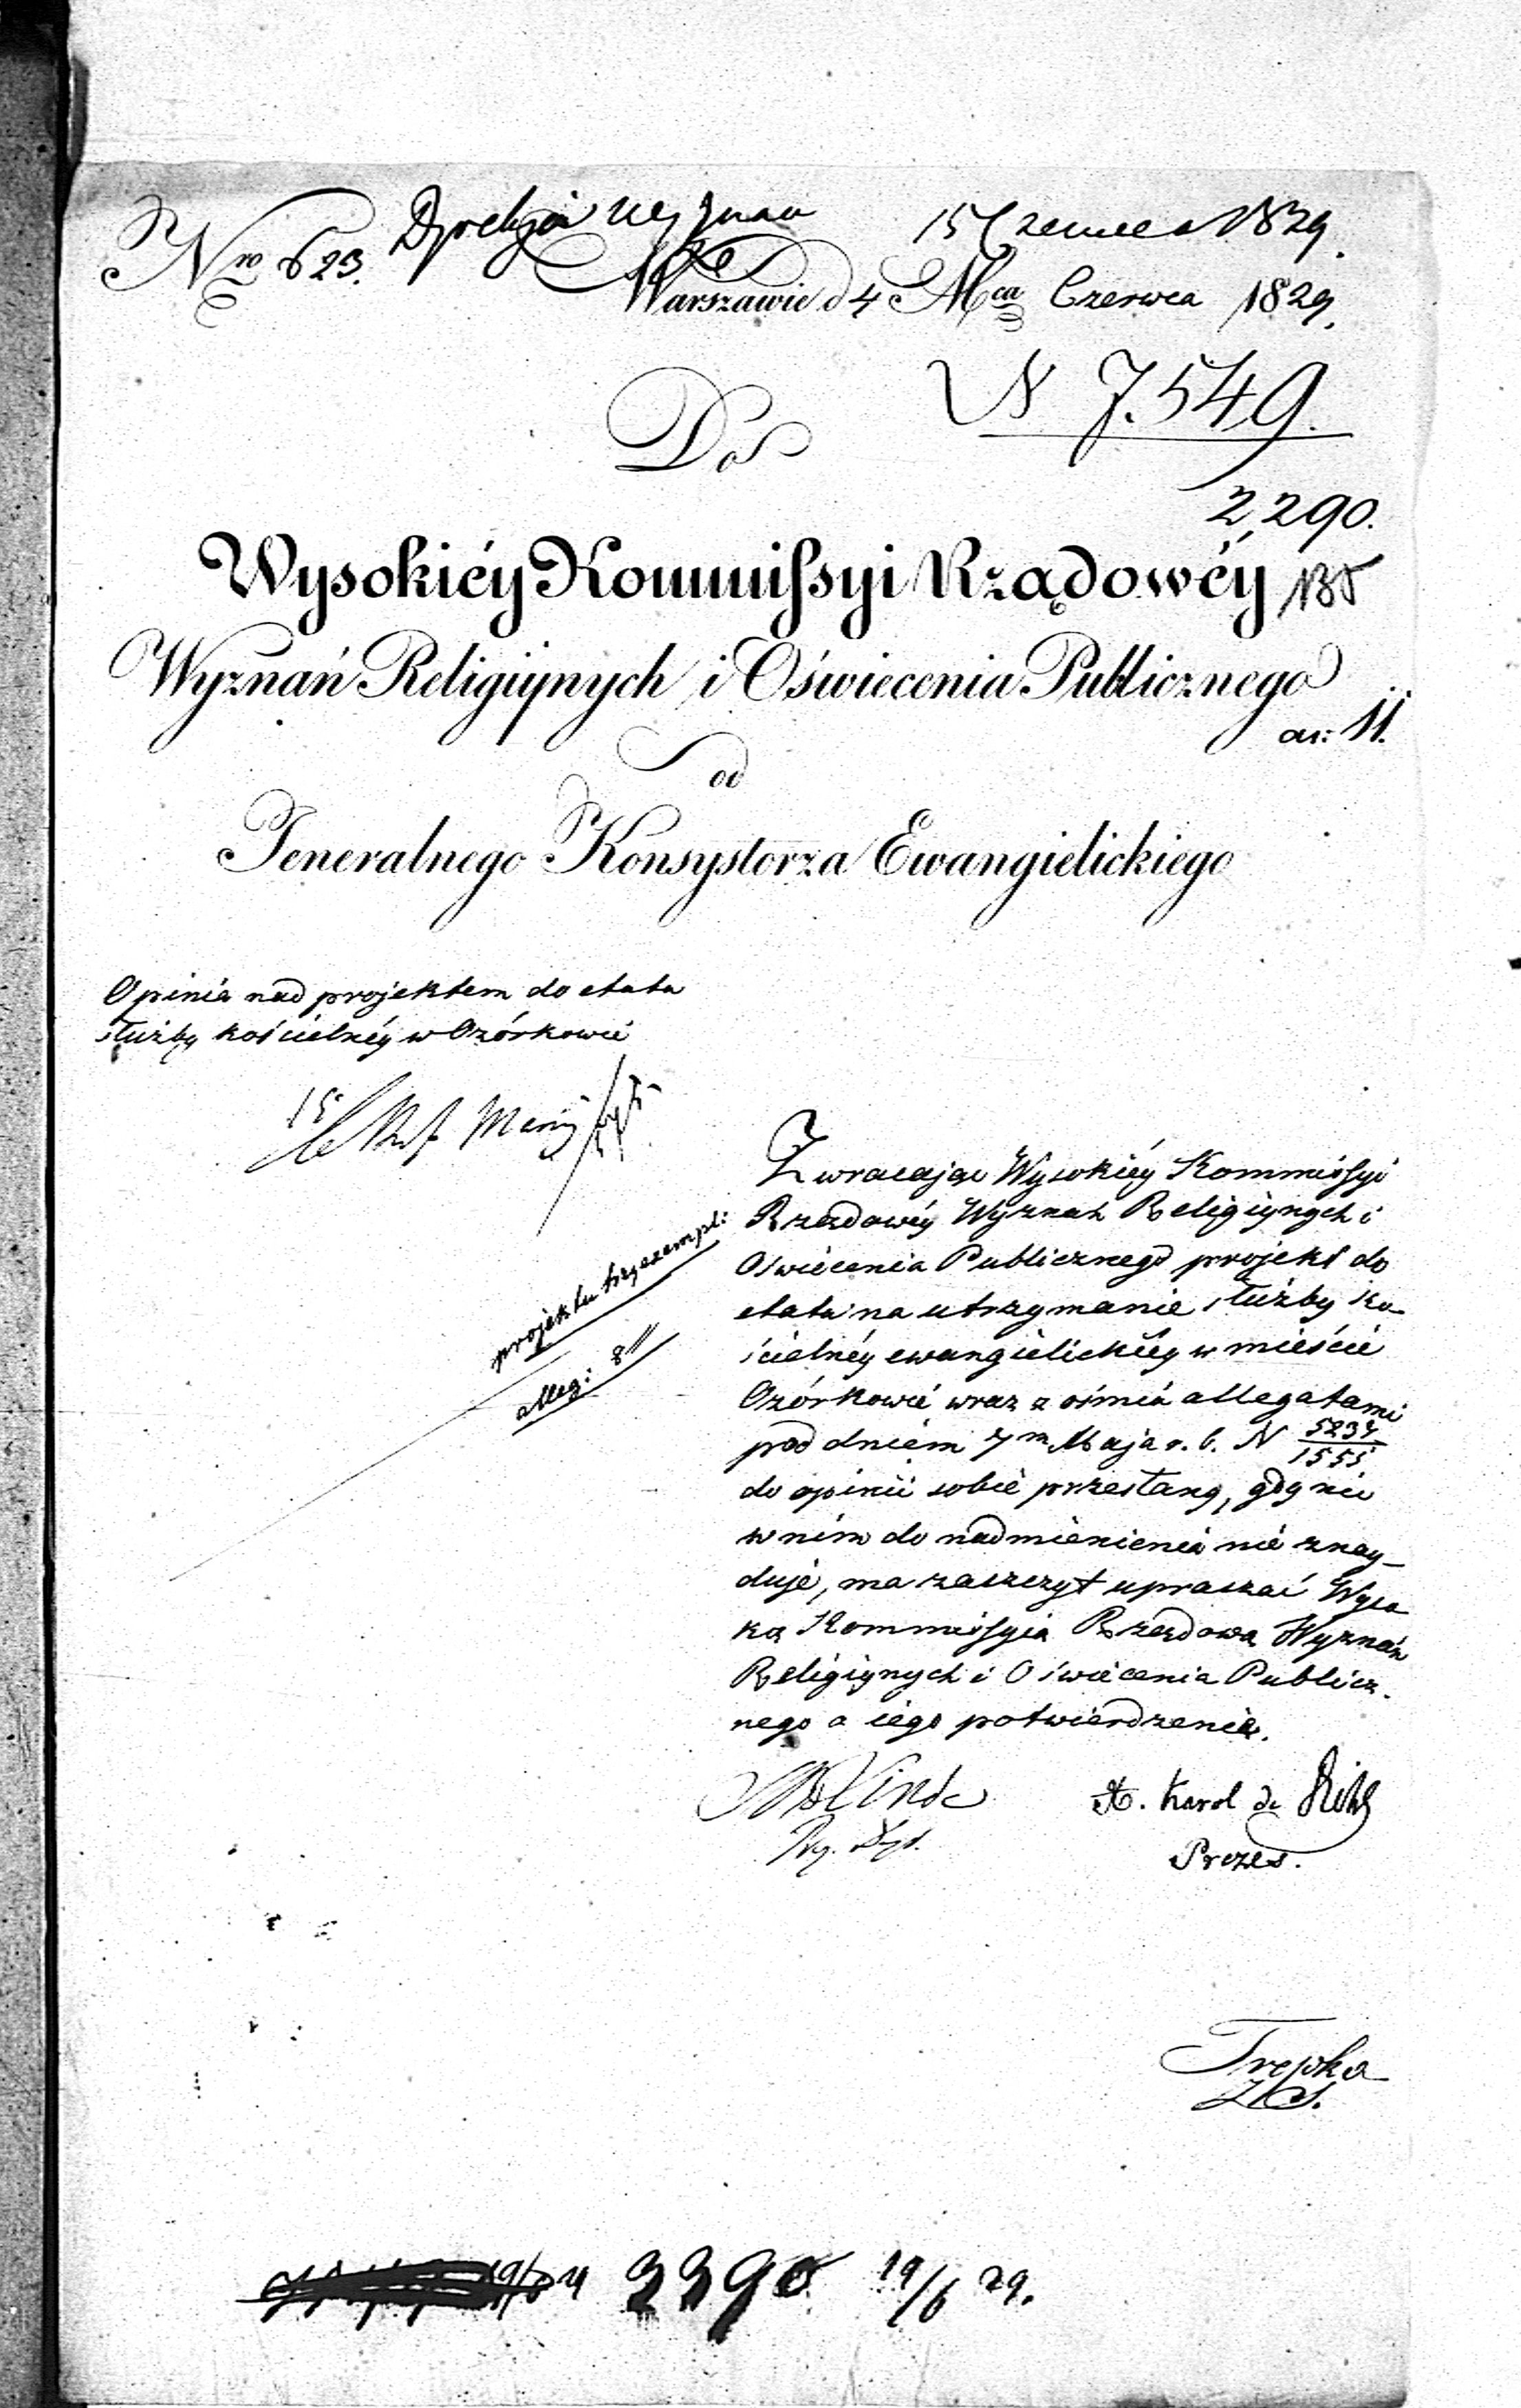 Nro 623. Dyrekcja Wyznań 15 Czerwca 1829.
w Warszawie d 4 Mca Czerwca 1829.
N 7.549.
Do
2,290.
Wysokiéy Kommissyi Rządowéy
Wyznań Religiynych i Oświecenia Publicznego
as: 11.
od
Jeneralnego Konsystorza Ewangielickiego
Opinia nad projektem do etatu
służby kościelnéy w Ozórkowie
15
projektu trzy exempl:
alleg: 8
Zwracając Wysokiéy Kommissyi
Rządowéy Wyznań Religiynych i
Oświecenia Publicznego projekt do
etatu na utrzymanie służby ko-
ścielnéy ewangielickiéy w mieście
Ozórkowie wraz z ośmią allegatami
pod dniem 7m Maja r. b. N 5234/1555
do opinii sobie przesłany, gdy nic
w nim do nadmienienia nie znay-
duje, ma zaszczyt upraszać Wyso
ką Kommissyią Rządową Wyznań
Religiynych i Oświecenia Publicz-
nego o iego potwierdzenie.
Karol de
Prezes.
Trepka
ZS.
2290 19/6 29.